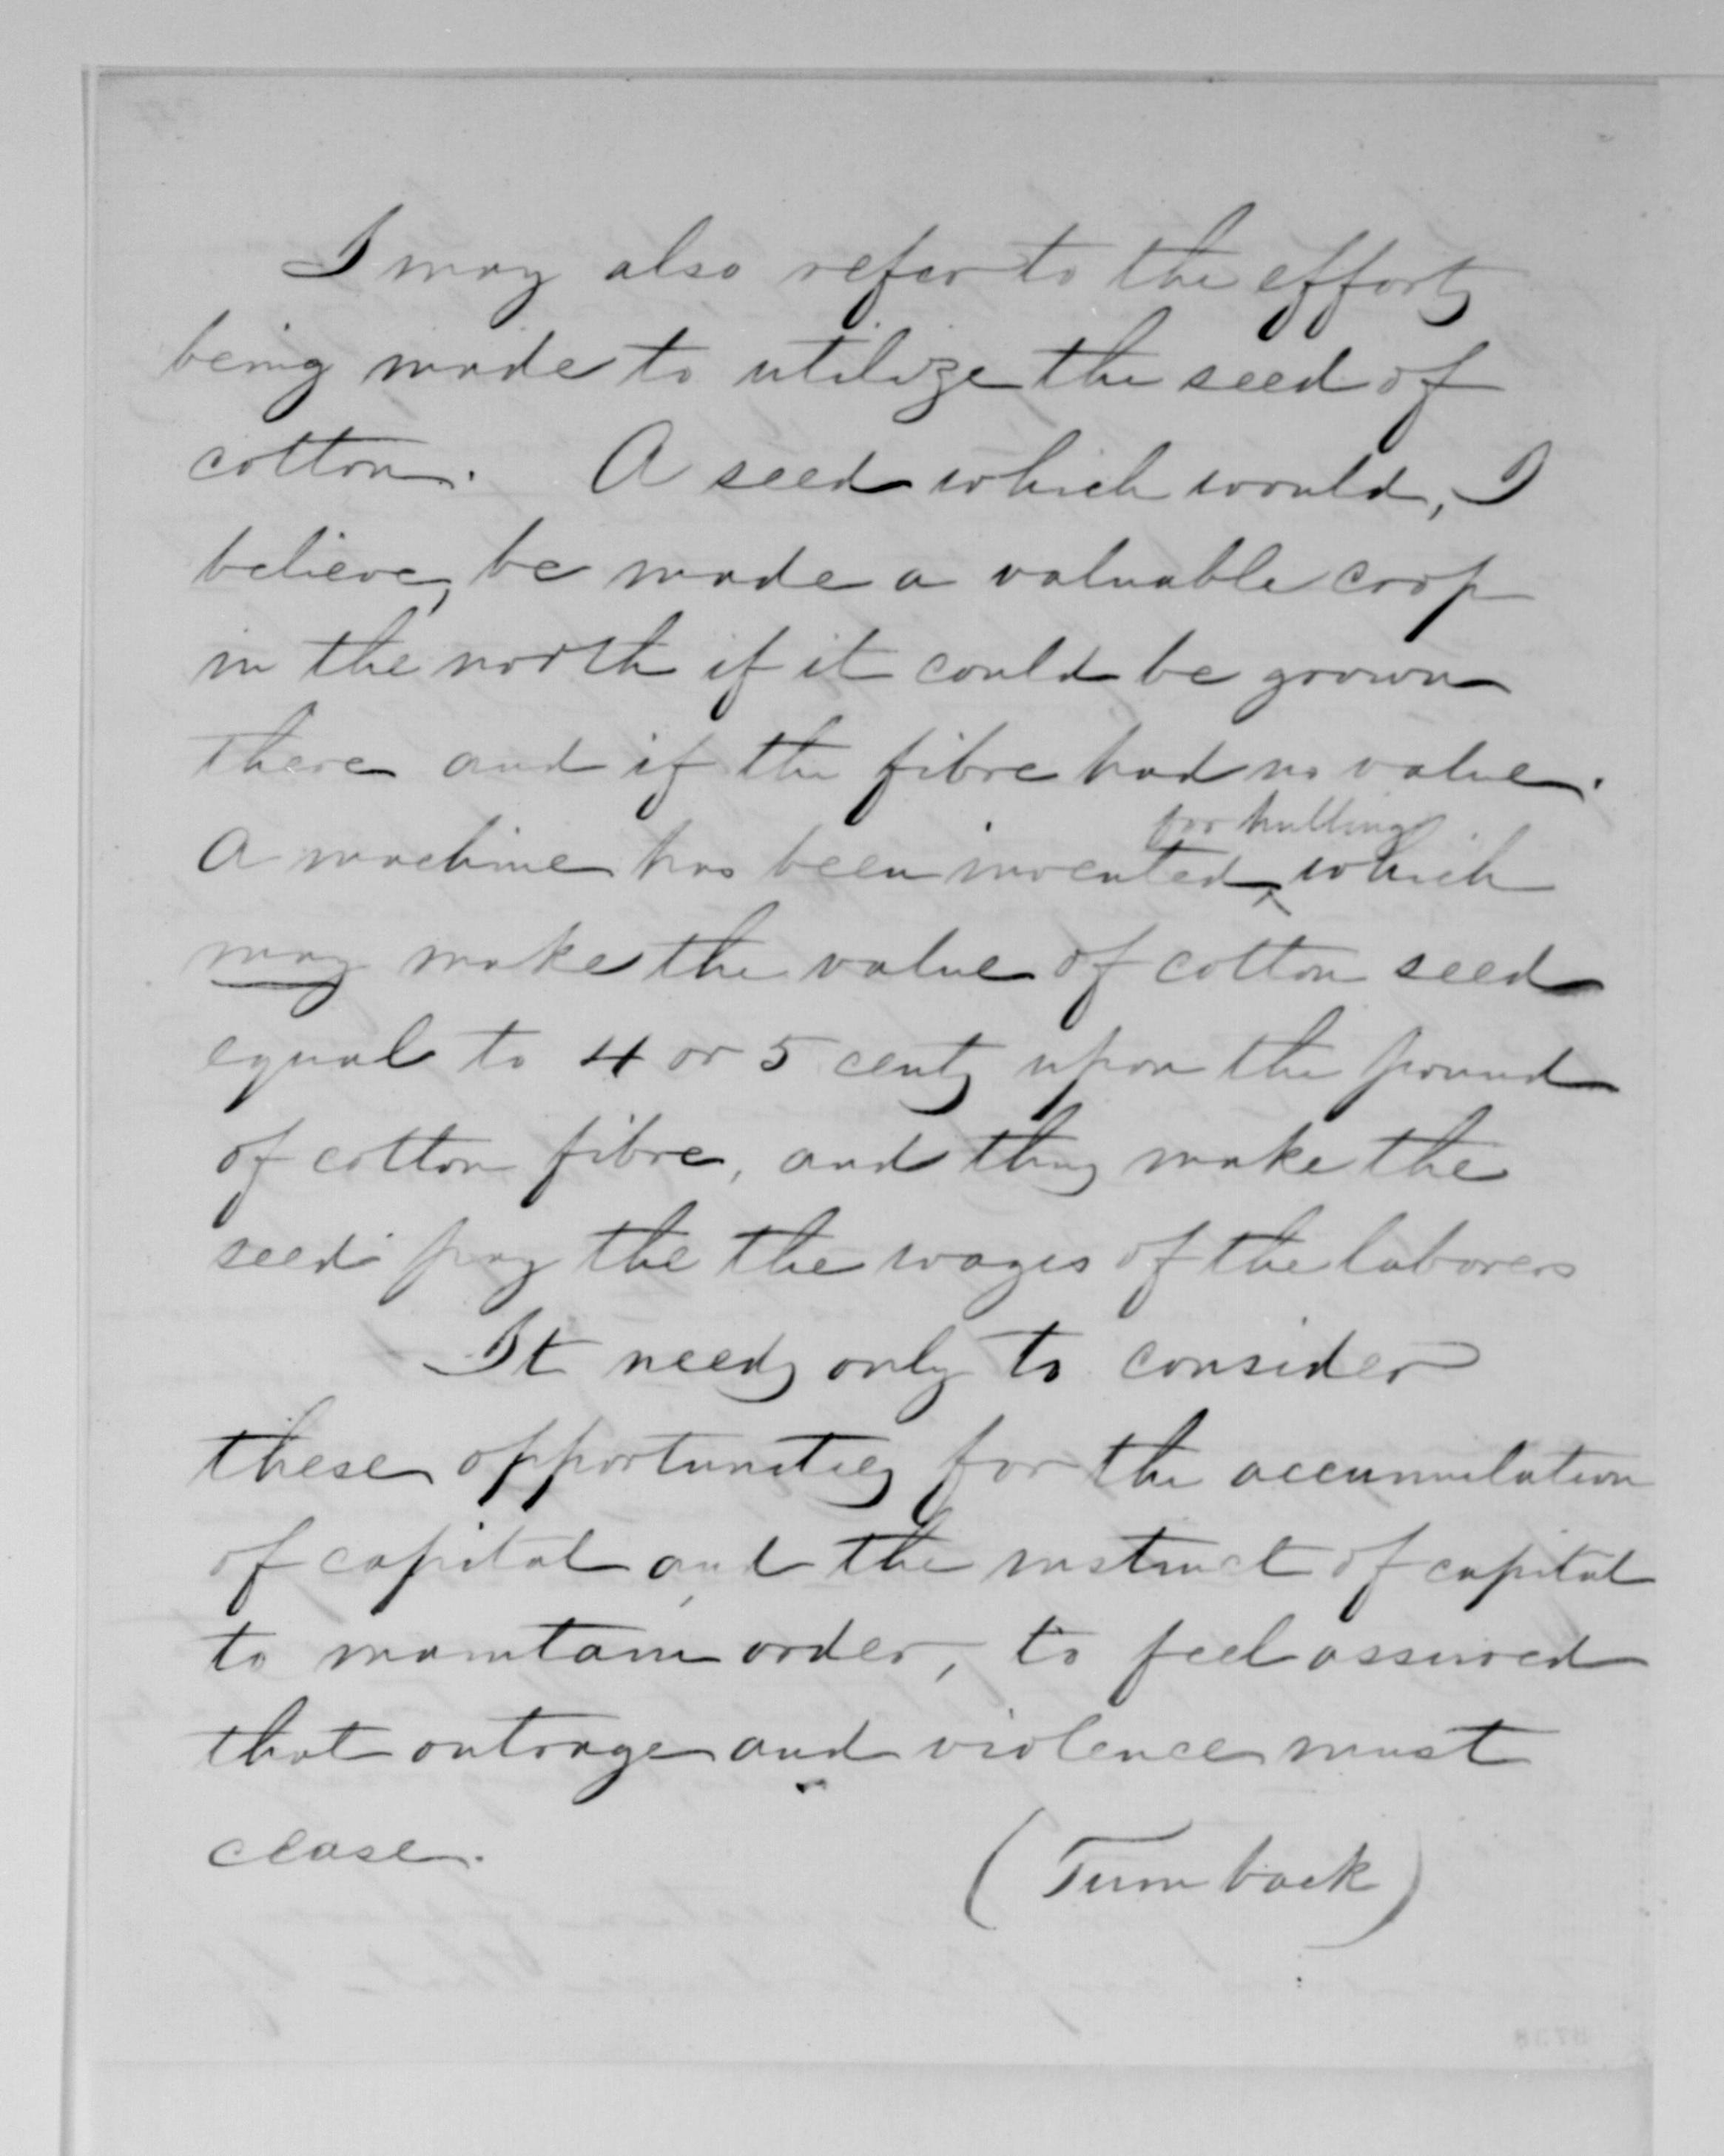 I may also refer to the efforts
being made to utilize the seed of
cotton. A seed which would, I
believe, be made a valuable crop
in the north if it could be grown
there and if the fibre had no value.
for hulling
A machine has been invented ‸ which
may make the value of cotton seed
equal to 4 or 5 cents upon the pound
of cotton fibre, and thus make the
seed pay the the wages of the laborers
It needs only to consider
these opportunities for the accumulation
of capital and the instinct of capital
to maintain order, to feel assured
that outrage and violence must
cease.
(Turn back)